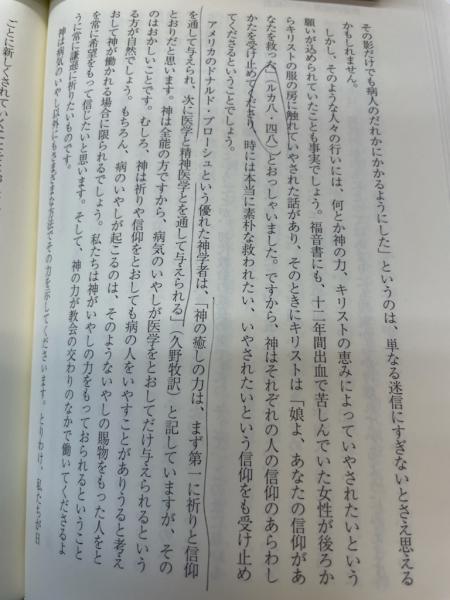 その影だけでも病人のだれかにかかるようにした」というのは、単なる迷信にすぎないとさえ思える
かもしれません。
しかし、そのような人々の行いには、何とか神の力、キリストの恵みによっていやされたいという
願いが込められていたことも事実でしょう。福音書にも、十二年間出血で苦しんでいた女性が後ろか
らキリストの服の房に触れていやされた話があり、そのときにキリストは「娘よ、あなたの信仰があ
なたを救った」(ルカ八・四八)とおっしゃいました。ですから、神はそれぞれの人の信仰のあらわし
かたを受け止めてくださり、時には本当に素朴な救われたい、いやされたいという信仰をも受け止め
てくださるということでしょう。
アメリカのドナルド・ブローシュという優れた神学者は、「神の癒しの力は、まず第一に祈りと信仰
を通して与えられ、次に医学と精神医学とを通して与えられる」(久野牧訳)と記していますが、その
とおりだと思います。神は全能の方ですから、病気のいやしが医学をとおしてだけ与えられるという
のはおかしいことです。むしろ、神は祈りや信仰をとおしても病の人をいやすことがありうると考え
る方が自然でしょう。もちろん、病のいやしが起こるのは、そのようないやしの賜物をもった人をと
おして神が働かれる場合に限られるでしょう。私たちは神がいやしの力をもっておられるということ
を常に希望をもって信じたいと思います。そして、神の力が教会の交わりのなかで働いてくださるよ
うに常に謙遜に祈りたいものです。
神は病気のいやし以外にもさまざまな方法でその力を示してくださいます。とりわけ、私たちが日
ごとに新しくされていくことに